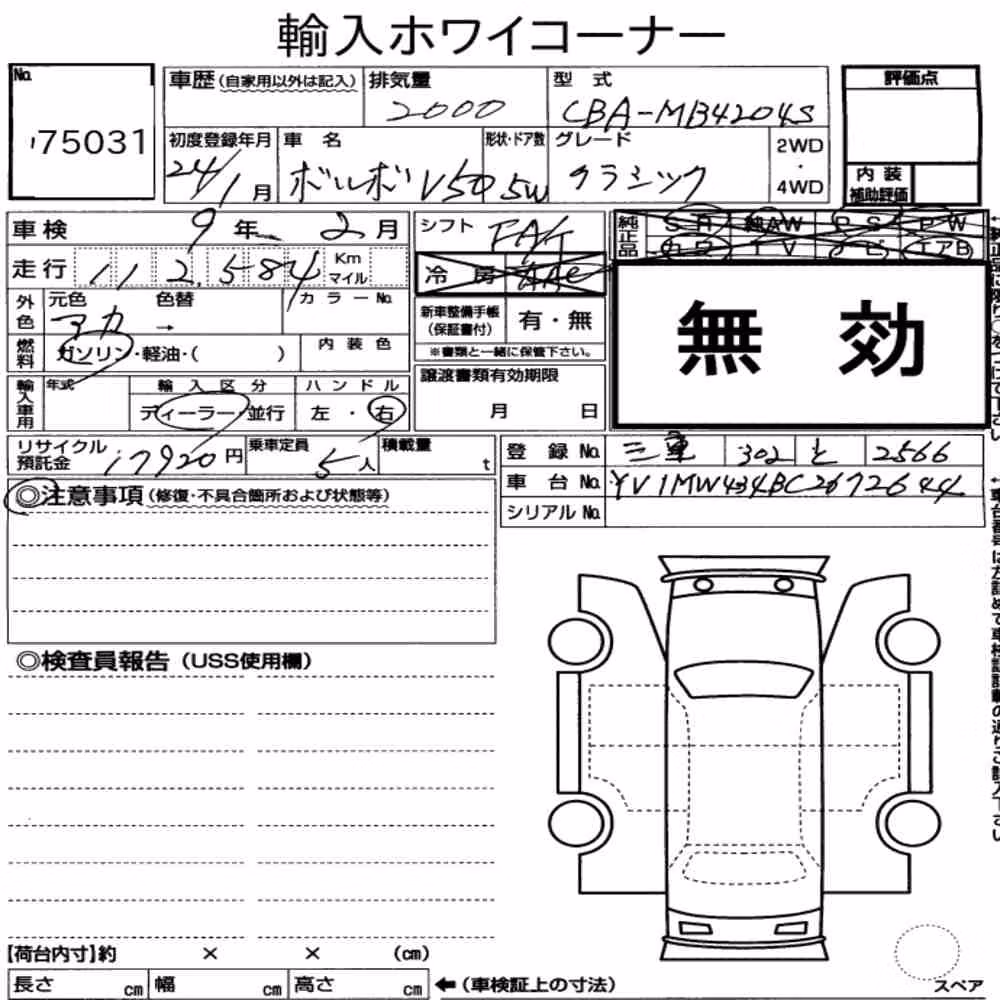 輸入ホワイコーナー
No. 75031
車歴(自家用以外は記入)
排気量 2000
型式 CBA-MB4204S
評価点
初度登録年月 24/1月
車名 ボルボV50
形状・ドア数 5W
グレード クラシック
2WD・4WD
内装補助評価
車検 9年 2月
シフト FA/T
純正品 SR 純AW PS PW
カワ TV ナビ エアB
走行 112,584 Km マイル
冷房 AAC
外色 元色 アカ 色替 → カラーNo.
新車整備手帳(保証書付) 有・無
※書類と一緒に保管下さい。
無効
燃料 ガソリン・軽油・( ) 内装色
輸入車用 年式 輸入区分 ディーラー・並行 ハンドル 左・右
譲渡書類有効期限 月 日
リサイクル預託金 17920円
乗車定員 5人
積載量 t
登録No. 三重 302 と 2566
車台No. YV1MW434BC2672644
シリアルNo.
◎注意事項(修復・不具合箇所および状態等)
◎検査員報告(USS使用欄)
【荷台内寸】約 × × (cm)
長さ cm 幅 cm 高さ cm ←(車検証上の寸法)
スペア